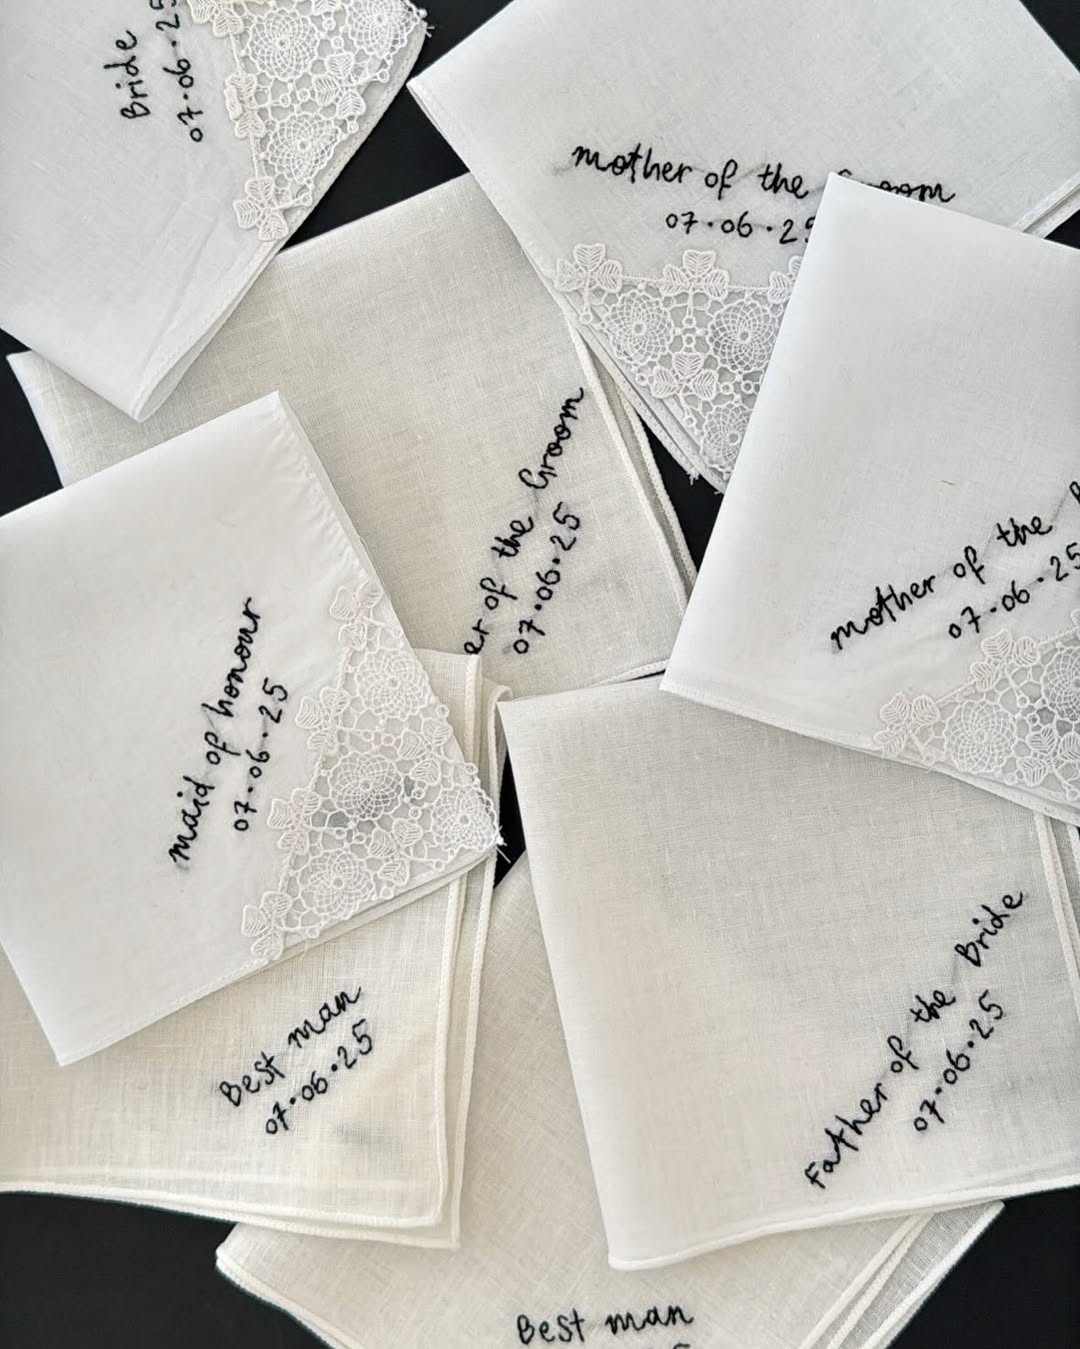 Bride
07·06·25
mother of the Groom
07·06·25
er of the Groom
07·06·25
mother of the
07·06·25
maid of honour
07·06·25
Father of the Bride
07·06·25
Best man
07·06·25
Best man